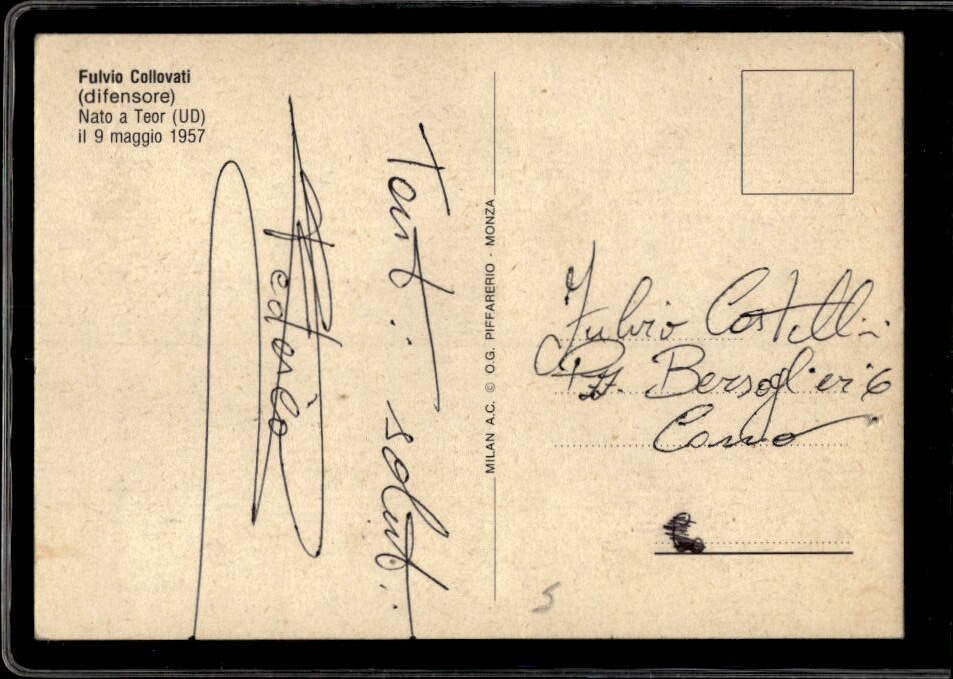 Fulvio Collovati
(difensore)
Nato a Teor (UD)
il 9 maggio 1957
Tanti saluti
MILAN A.C. © O.G. PIFFARERIO - MONZA
Fulvio Costelli
Pzz. Bersaglieri 6
5